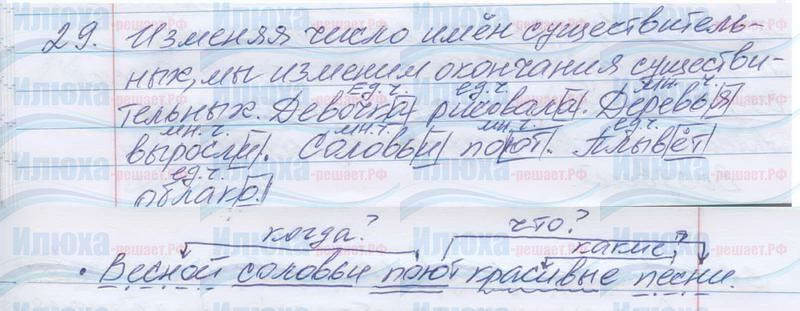 29. Изменяя число имён существитель-
ных, мы изменим окончания существи-
ед.ч. ед.ч. мн.ч.
тельных. Девочка рисовала. Деревья
мн.ч. мн.ч. мн.ч. ед.ч.
выросли. Соловьи поют. Плывёт
ед.ч.
облако.
когда? что?
какие?
• Весной соловьи поют красивые песни.
Илюха-решает.РФ